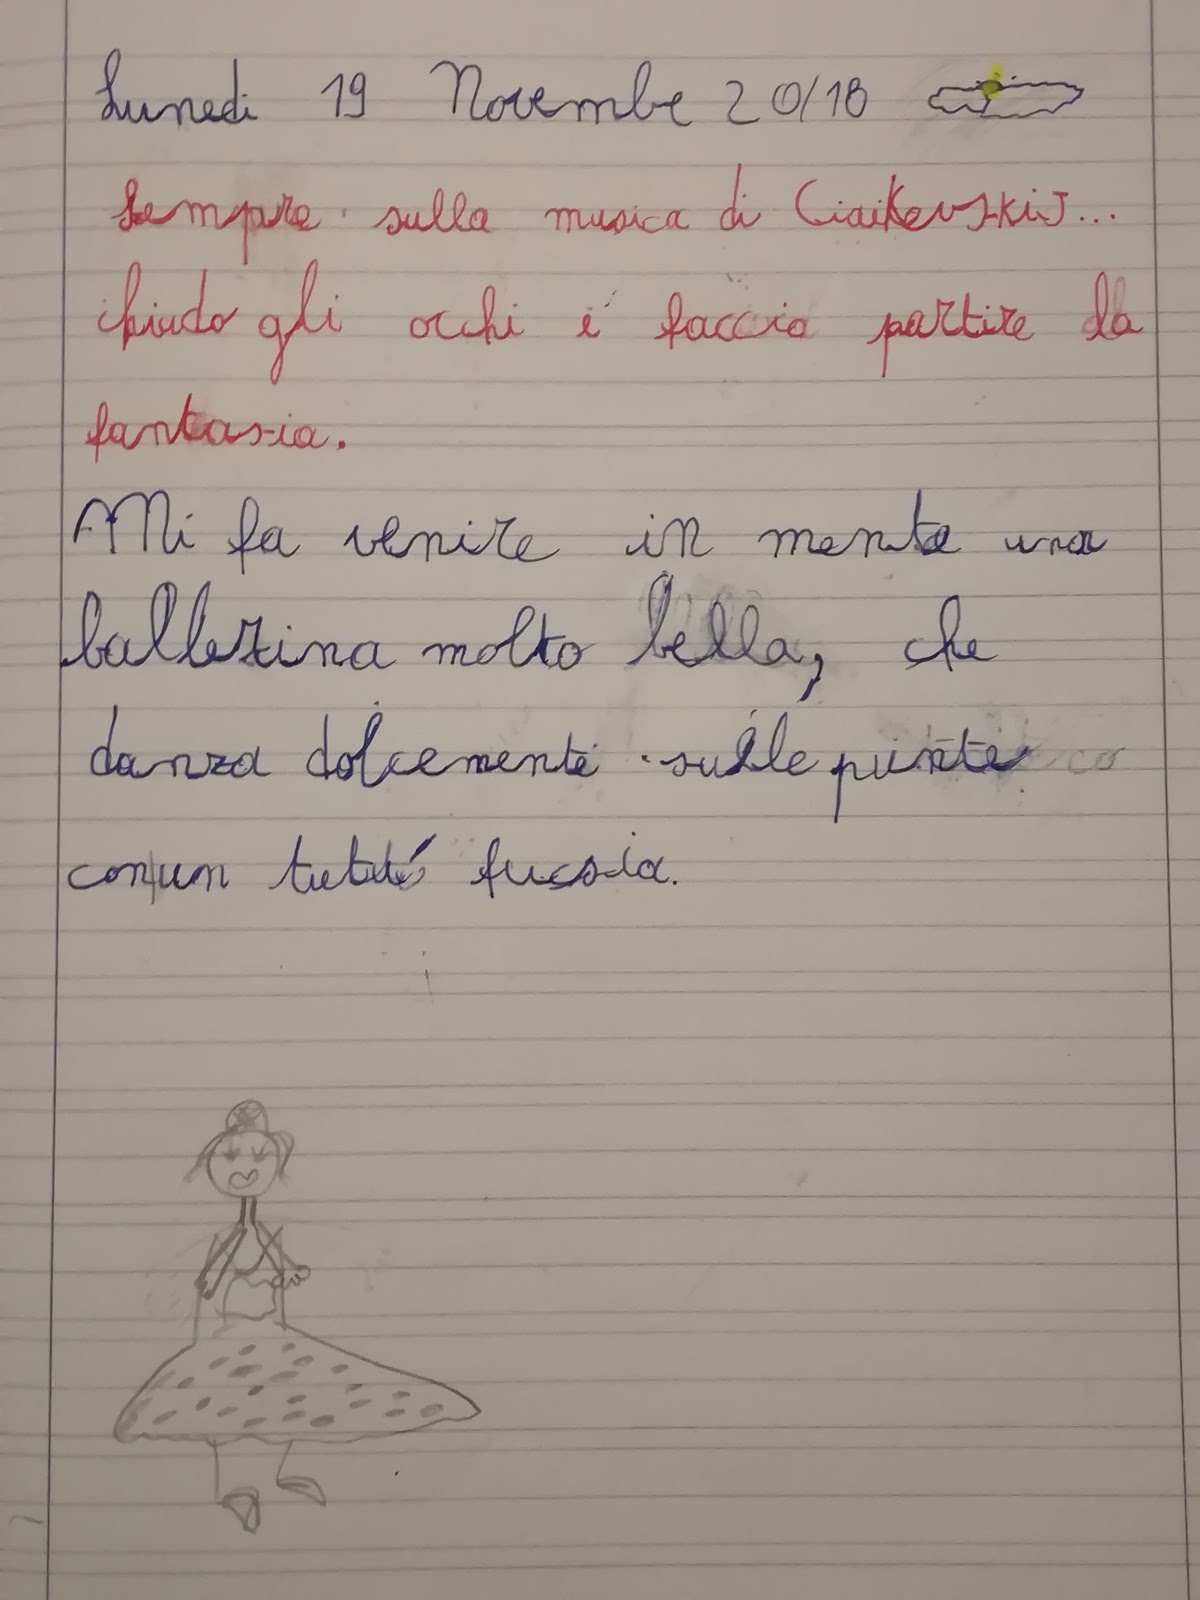 Lunedi 19 Novembe 20/18
Sempre sulla musica di Ciaikevskij...
chiudo gli occhi e faccio partire la
fantasia.
Mi fa venire in mente una
ballerina molto bella, che
danza dolcemente sulle punte co
con un tutité fucsia.